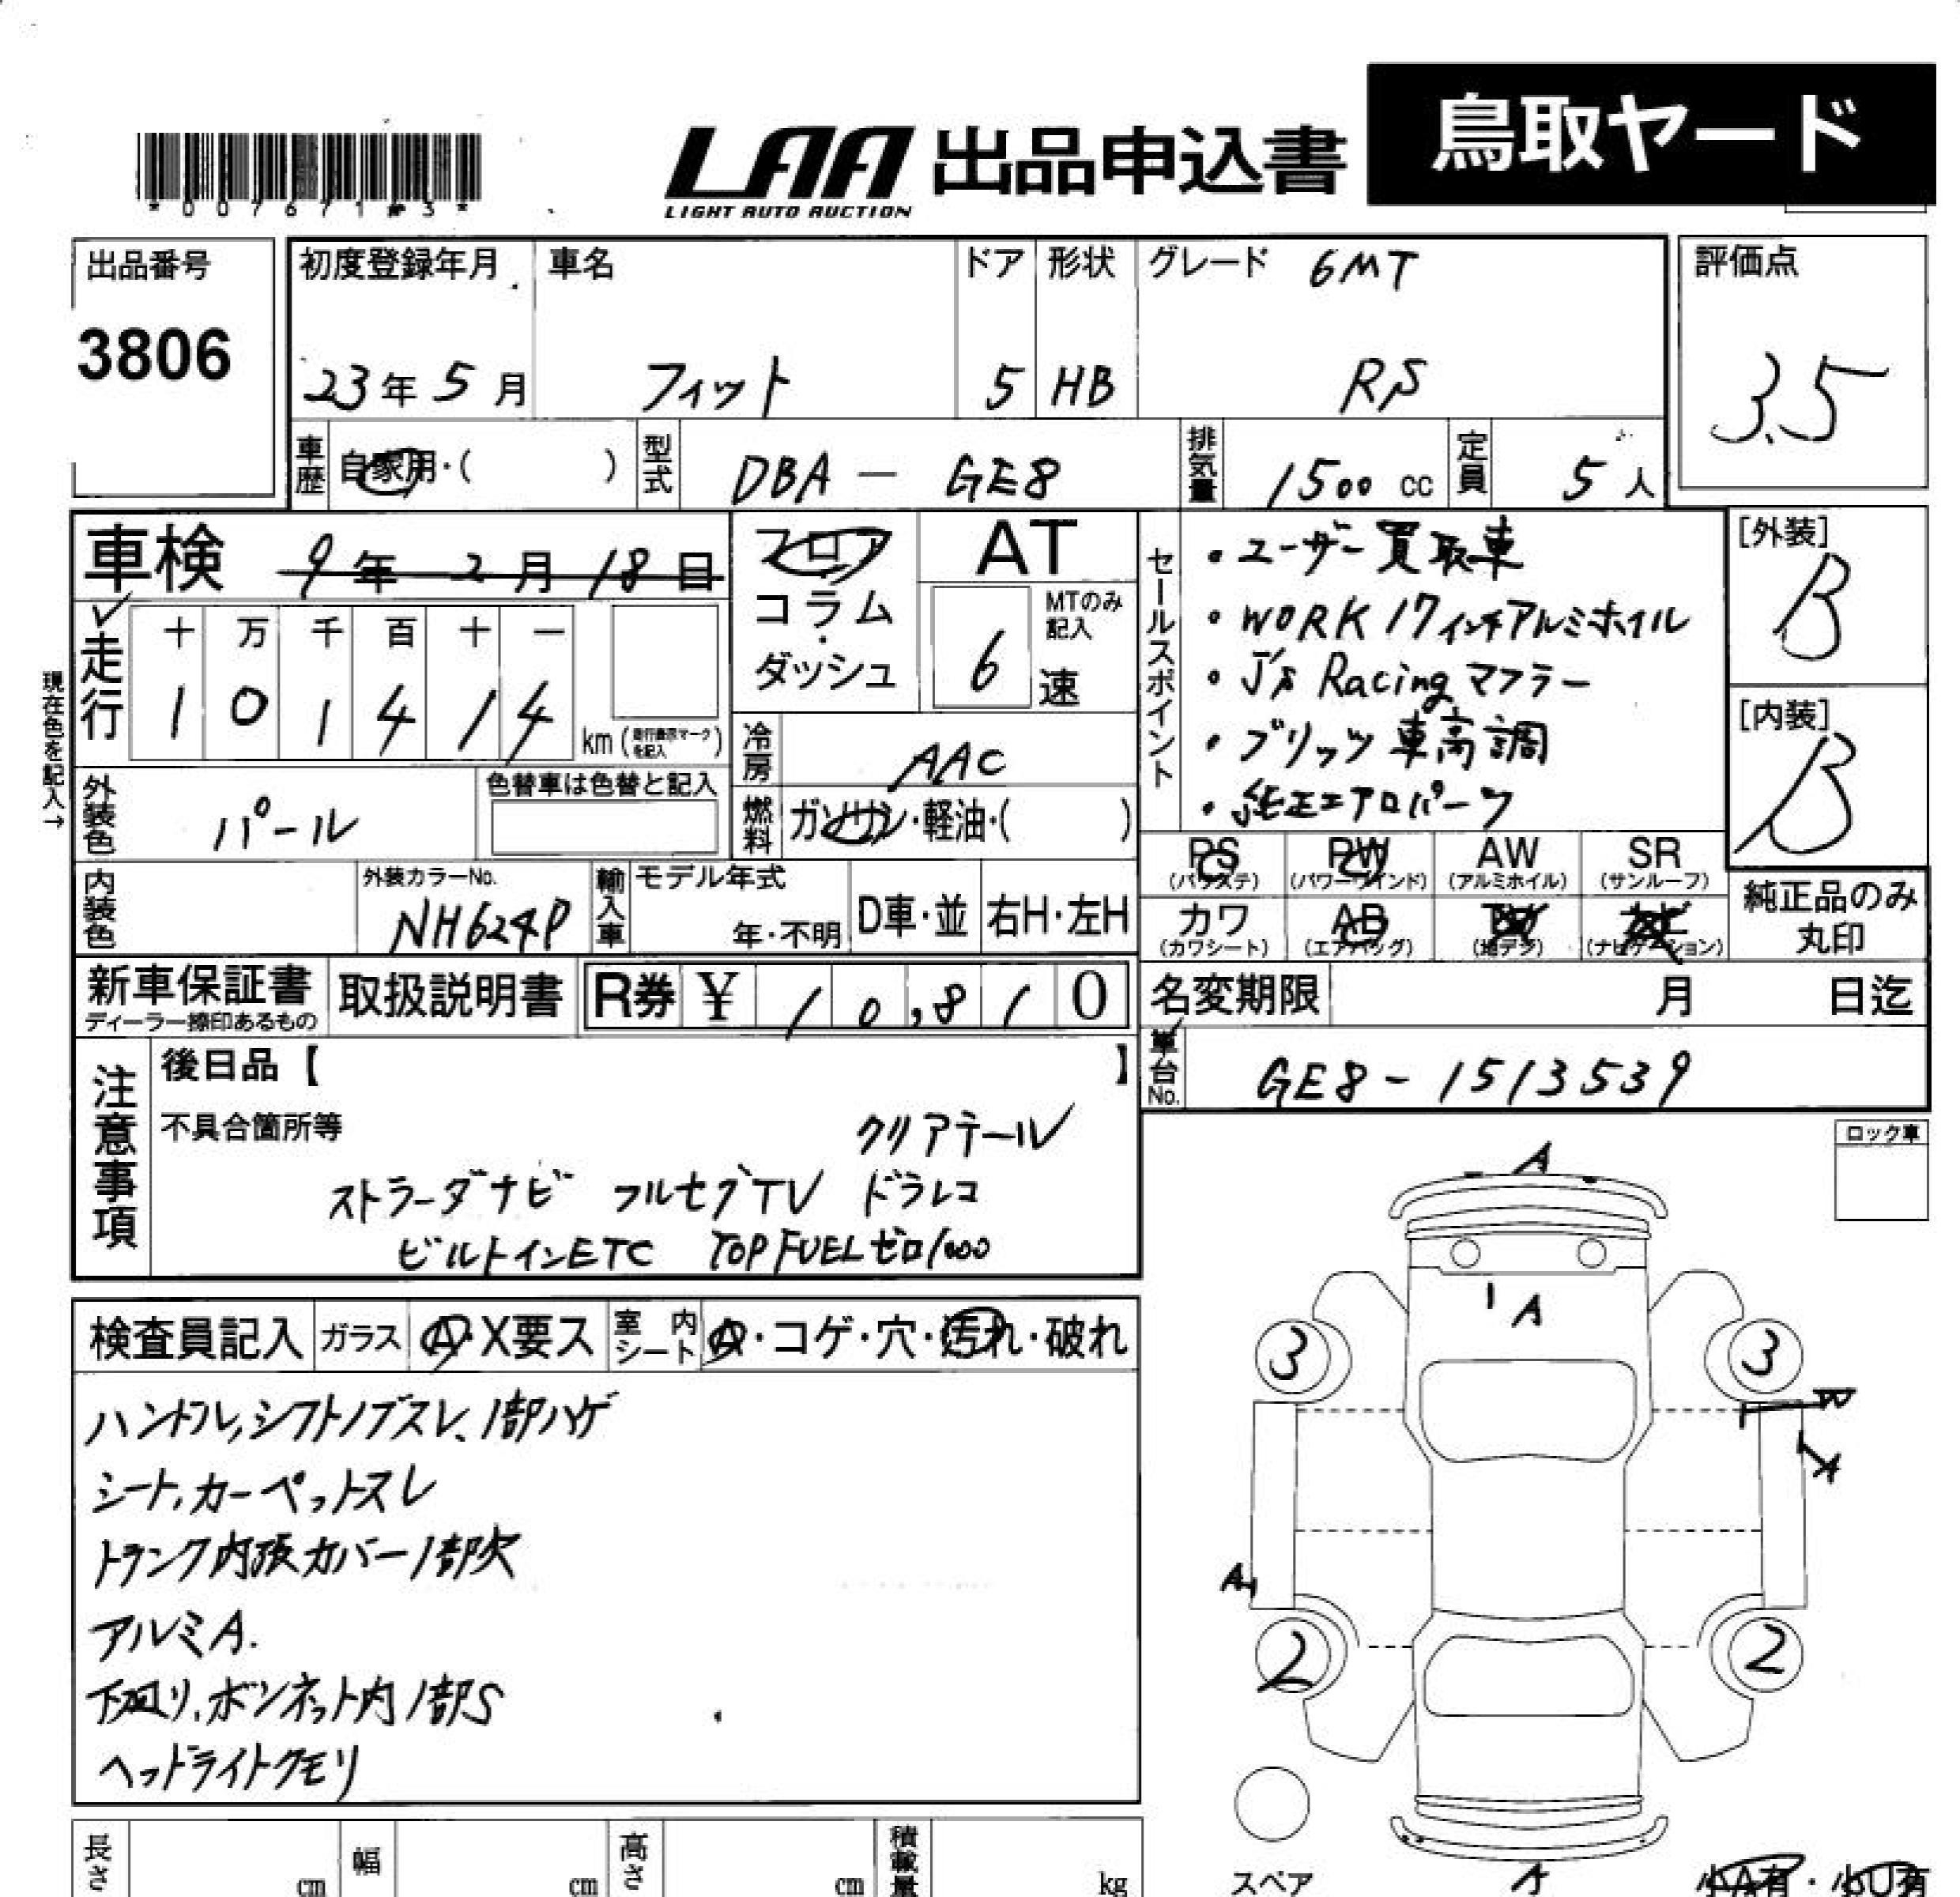 鳥取ヤード
LAA 出品申込書
LIGHT AUTO AUCTION
出品番号
3806
初度登録年月
23年5月
車名
フィット
ドア
5
形状
HB
グレード 6MT
RS
評価点
3.5
車歴
自家用・( )
型式
DBA - GE8
排気量
1500 cc
定員
5人
車検 9年2月18日
フロア
コラム・ダッシュ
AT
MTのみ記入
6速
セールスポイント
・ユーザー買取車
・WORK 17インチアルミホイル
・J's Racing マフラー
・ブリッツ車高調
・純正エアロパーツ
[外装]
B
[内装]
B
現在色を記入→
走行
十 万 千 百 十 一
1 0 1 4 1 4
km (走行表示マークを記入)
冷房
AAC
外装色
パール
色替車は色替と記入
燃料
ガソリン・軽油・( )
PS
(パワステ)
PW
(パワーウインド)
AW
(アルミホイル)
SR
(サンルーフ)
内装色
外装カラーNo.
NH624P
輸入車
モデル年式
年・不明
D車・並
右H・左H
カワ
(カワシート)
AB
(エアバッグ)
(地デジ)
ナビ
(ナビゲーション)
純正品のみ
丸印
新車保証書
ディーラー捺印あるもの
取扱説明書
R券 ¥ 10,810
名変期限
月 日迄
車台No.
GE8-1513539
注意事項
後日品【 】
不具合箇所等
クリアテール
ストラーダナビ フルセグTV ドラレコ
ビルトインETC TOP FUELゼロ1000
ロック車
A
A
3
3
W
A
A
2
2
検査員記入
ガラス
A・X要ス
室内シート
A・コゲ・穴・汚れ・破れ
ハンドル,シフトノブスレ、1部ハゲ
シート,カーペットスレ
トランク内張カバー1部欠
アルミA.
下廻り,ボンネット内1部S
ヘッドライトクモリ
長さ
cm
幅
cm
高さ
cm
積載量
kg
スペア
A
小A有・小U有